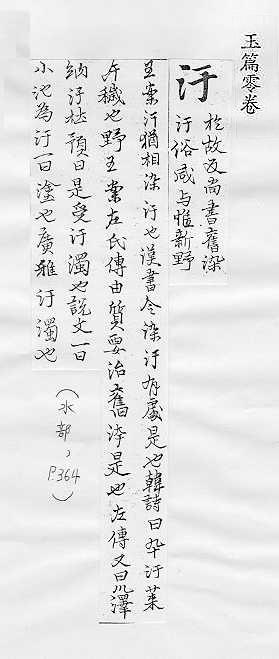 玉篇零卷
汙
於故反尚書舊染
汙俗咸与惟新野
王案汙猶相染汙也漢書令染汙有處是也韓詩曰卆汙萊
々穢也野王案左氏傳由質要治舊洿是也左傳又曰川澤
納汙杜預曰是受汙濁也說文一曰
小池為汙一曰塗也廣雅汙濁也
(水部,P.364)